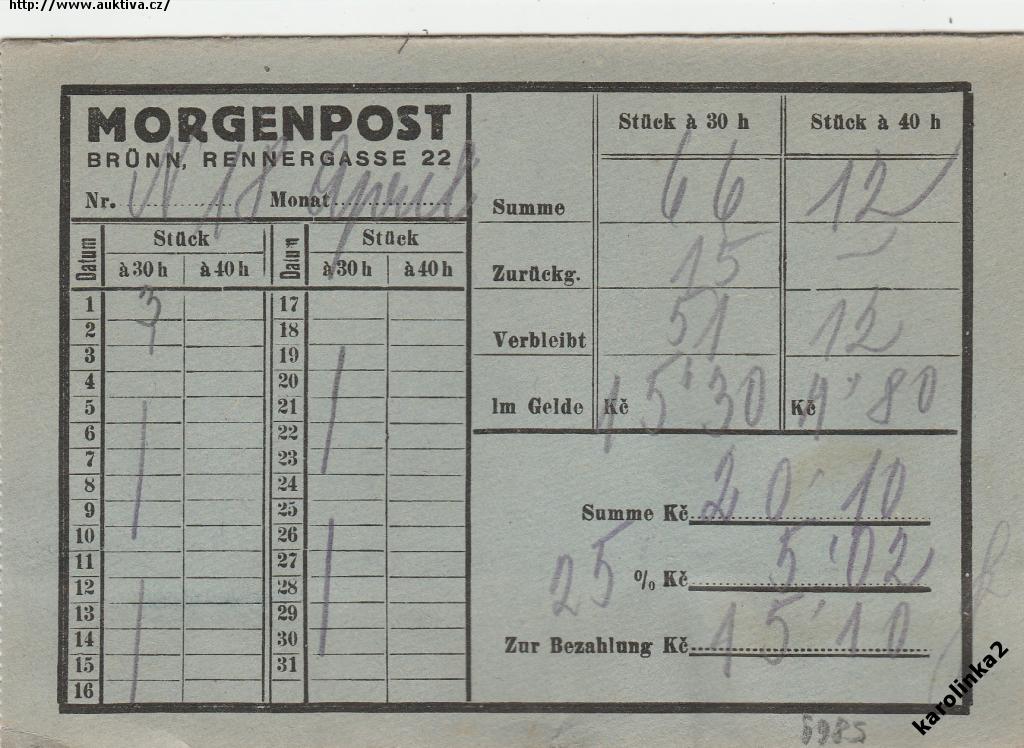 http://www.auktiva.cz/
MORGENPOST
BRÜNN, RENNERGASSE 22
Nr. N 18 Monat April
Datum Stück Datum Stück
à 30 h à 40 h à 30 h à 40 h
1 3 17
2 18
3 19
4 20
5 21
6 22
7 23
8 24
9 25
10 26
11 27
12 28
13 29
14 30
15 31
16
Stück à 30 h Stück à 40 h
Summe 66 12
Zurückg. 15 –
Verbleibt 51 12
Im Gelde Kč 15'30 Kč 4'80
Summe Kč 20'10
25 % Kč 5'02
Zur Bezahlung Kč 15'10
karolinka2
6985